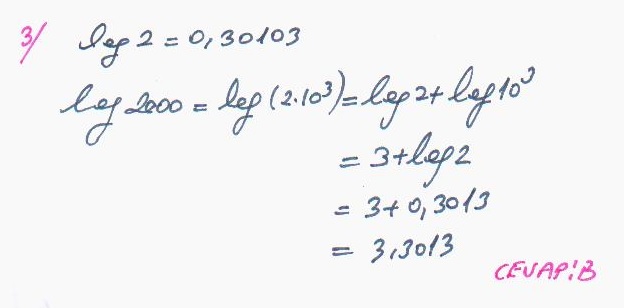 3/ log 2 = 0,30103
log 2000 = log (2.10³) = log 2 + log 10³
= 3 + log 2
= 3 + 0,3013
= 3,3013
CEVAP: B